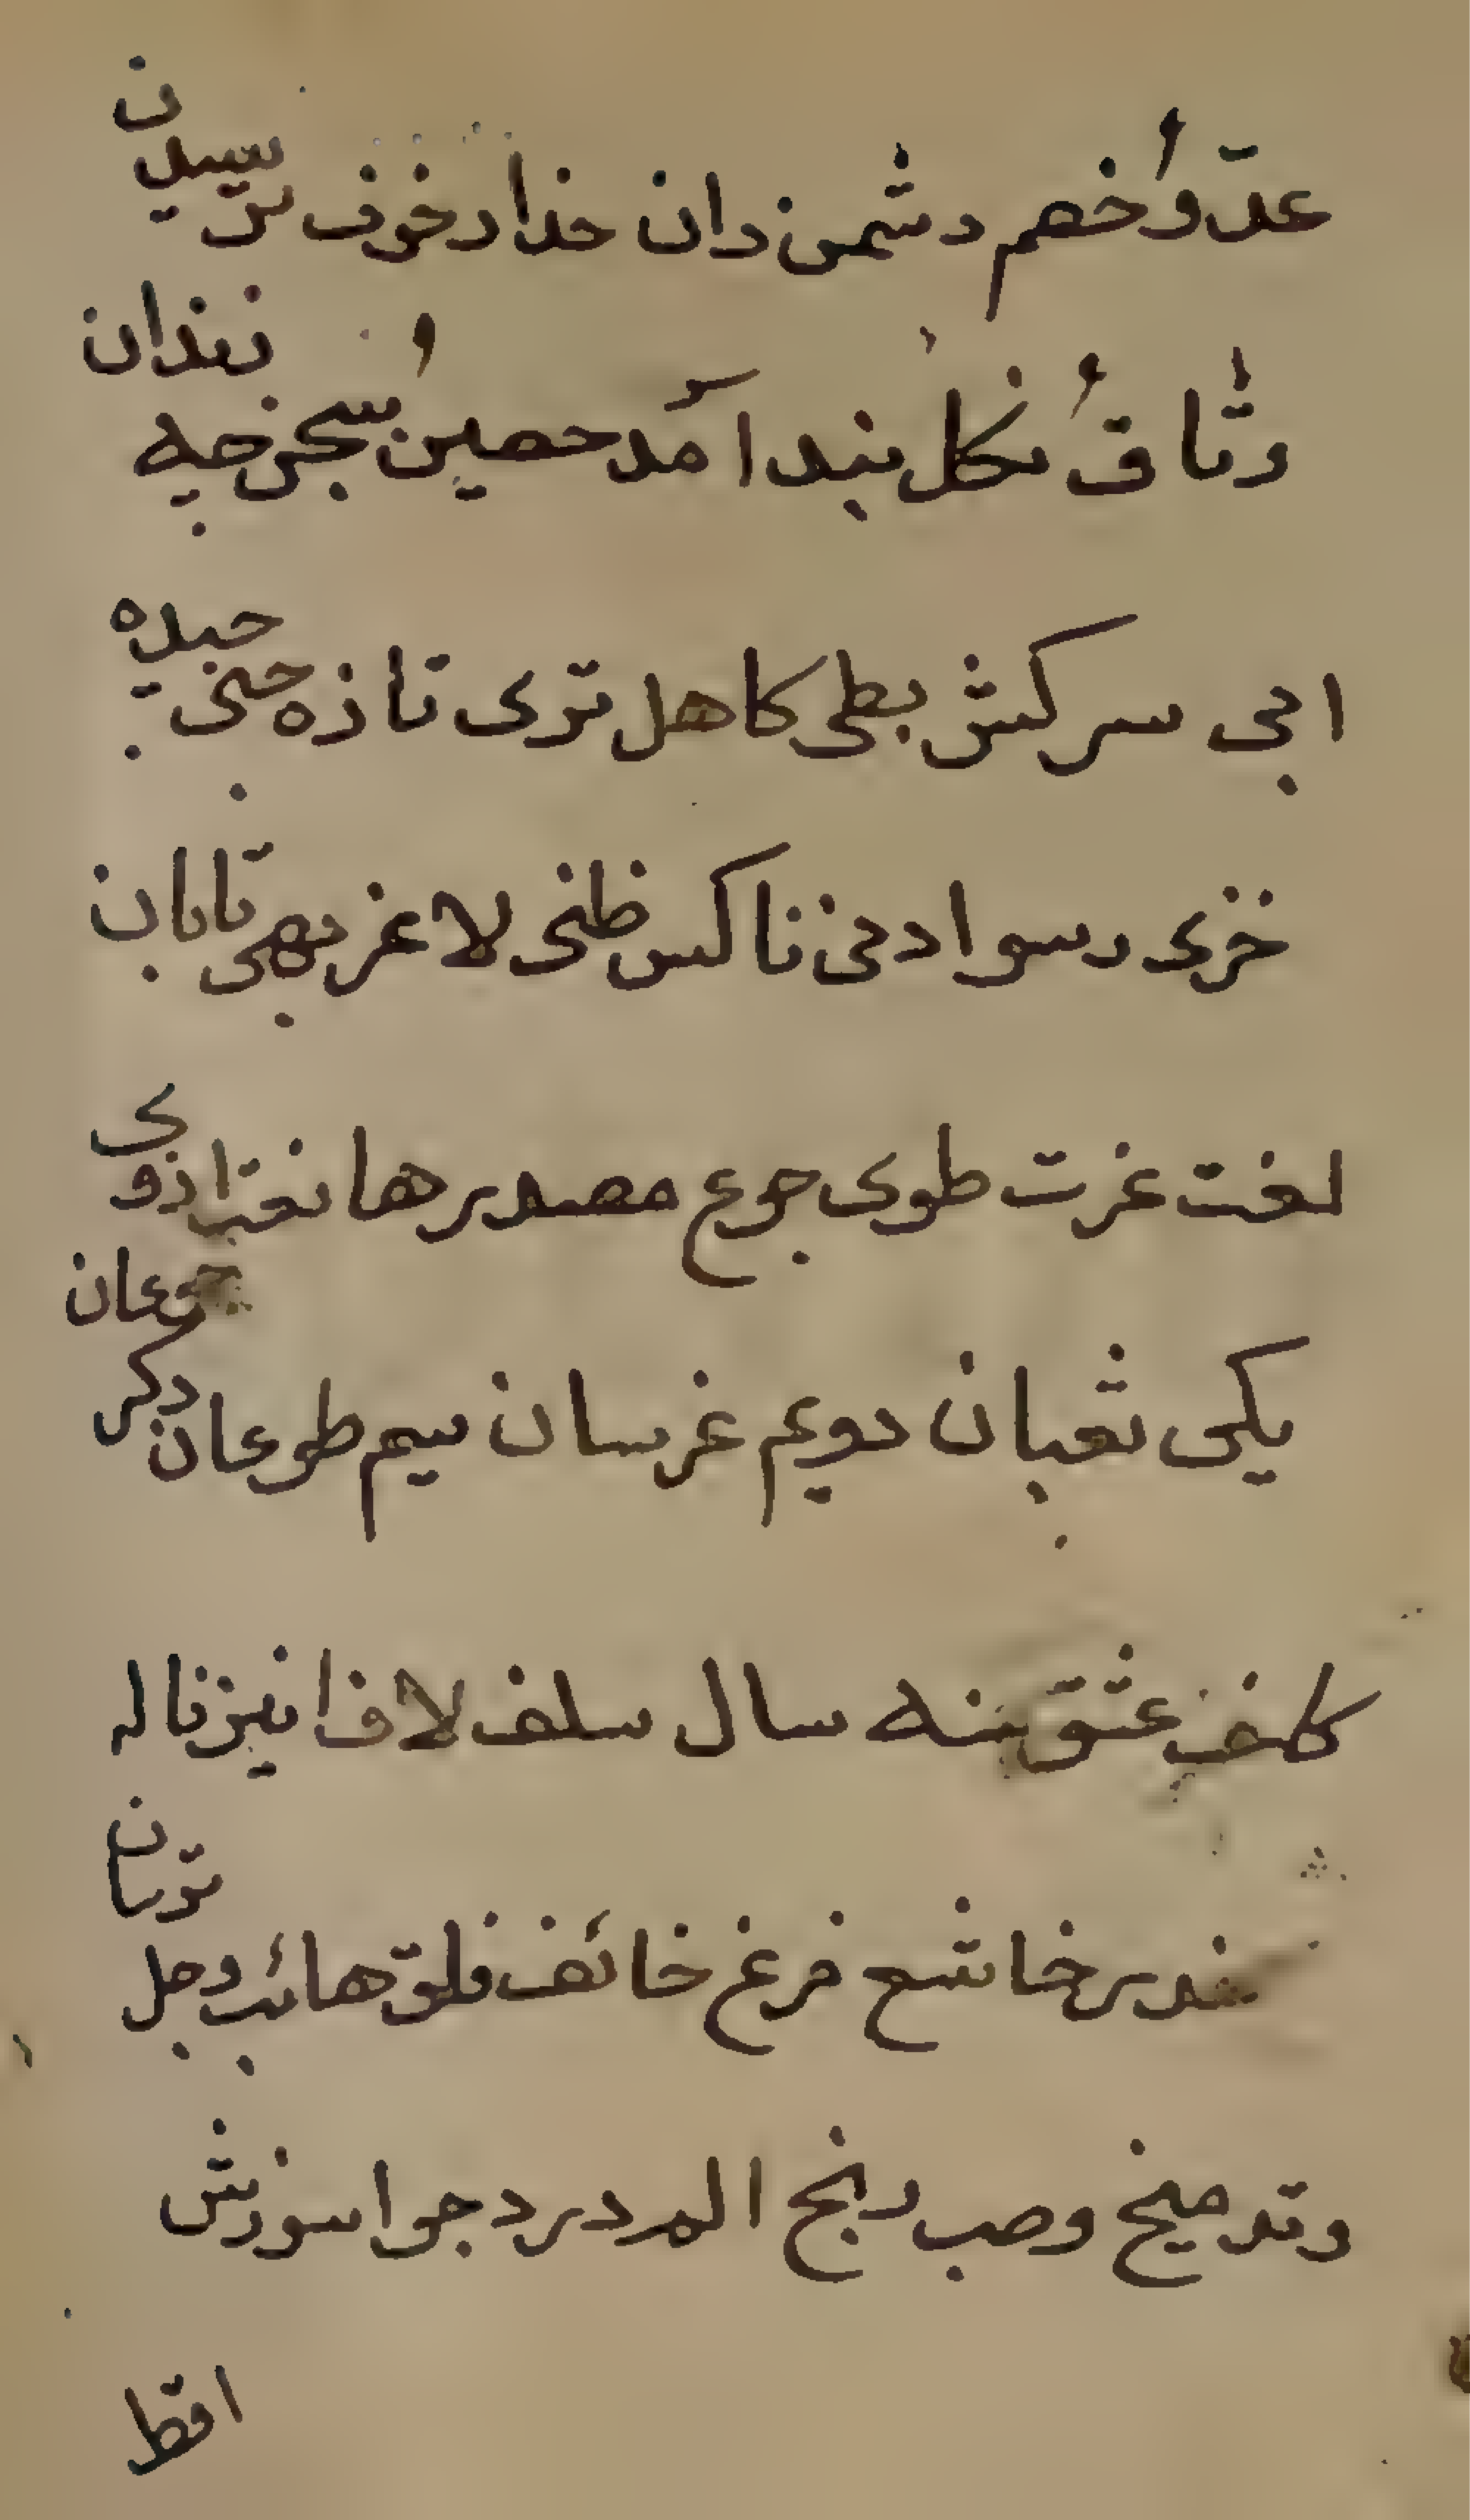 عدّو و خصم دشمن دان حذار خوف ترسیدن
وثاق نکل بند امد حصین سجن چه زندان
ابی سرکش بطی کاهل تری تازه جنی چیده
خزی رسوا دنی ناکس ظنی لاغر بهی تابان
لغت غرث طوی جوع مصدرها نعت از وی
یکی ثعبان دویم غرسان سیم طوعان دکر جوعان
کلف عشق سنه سال سلف لاف انین ناله
خدر خاشع فزع خائف فلق هائب وجل ترسان
وتد میخ وصب رنج الم درد جوا سوزش
اقط